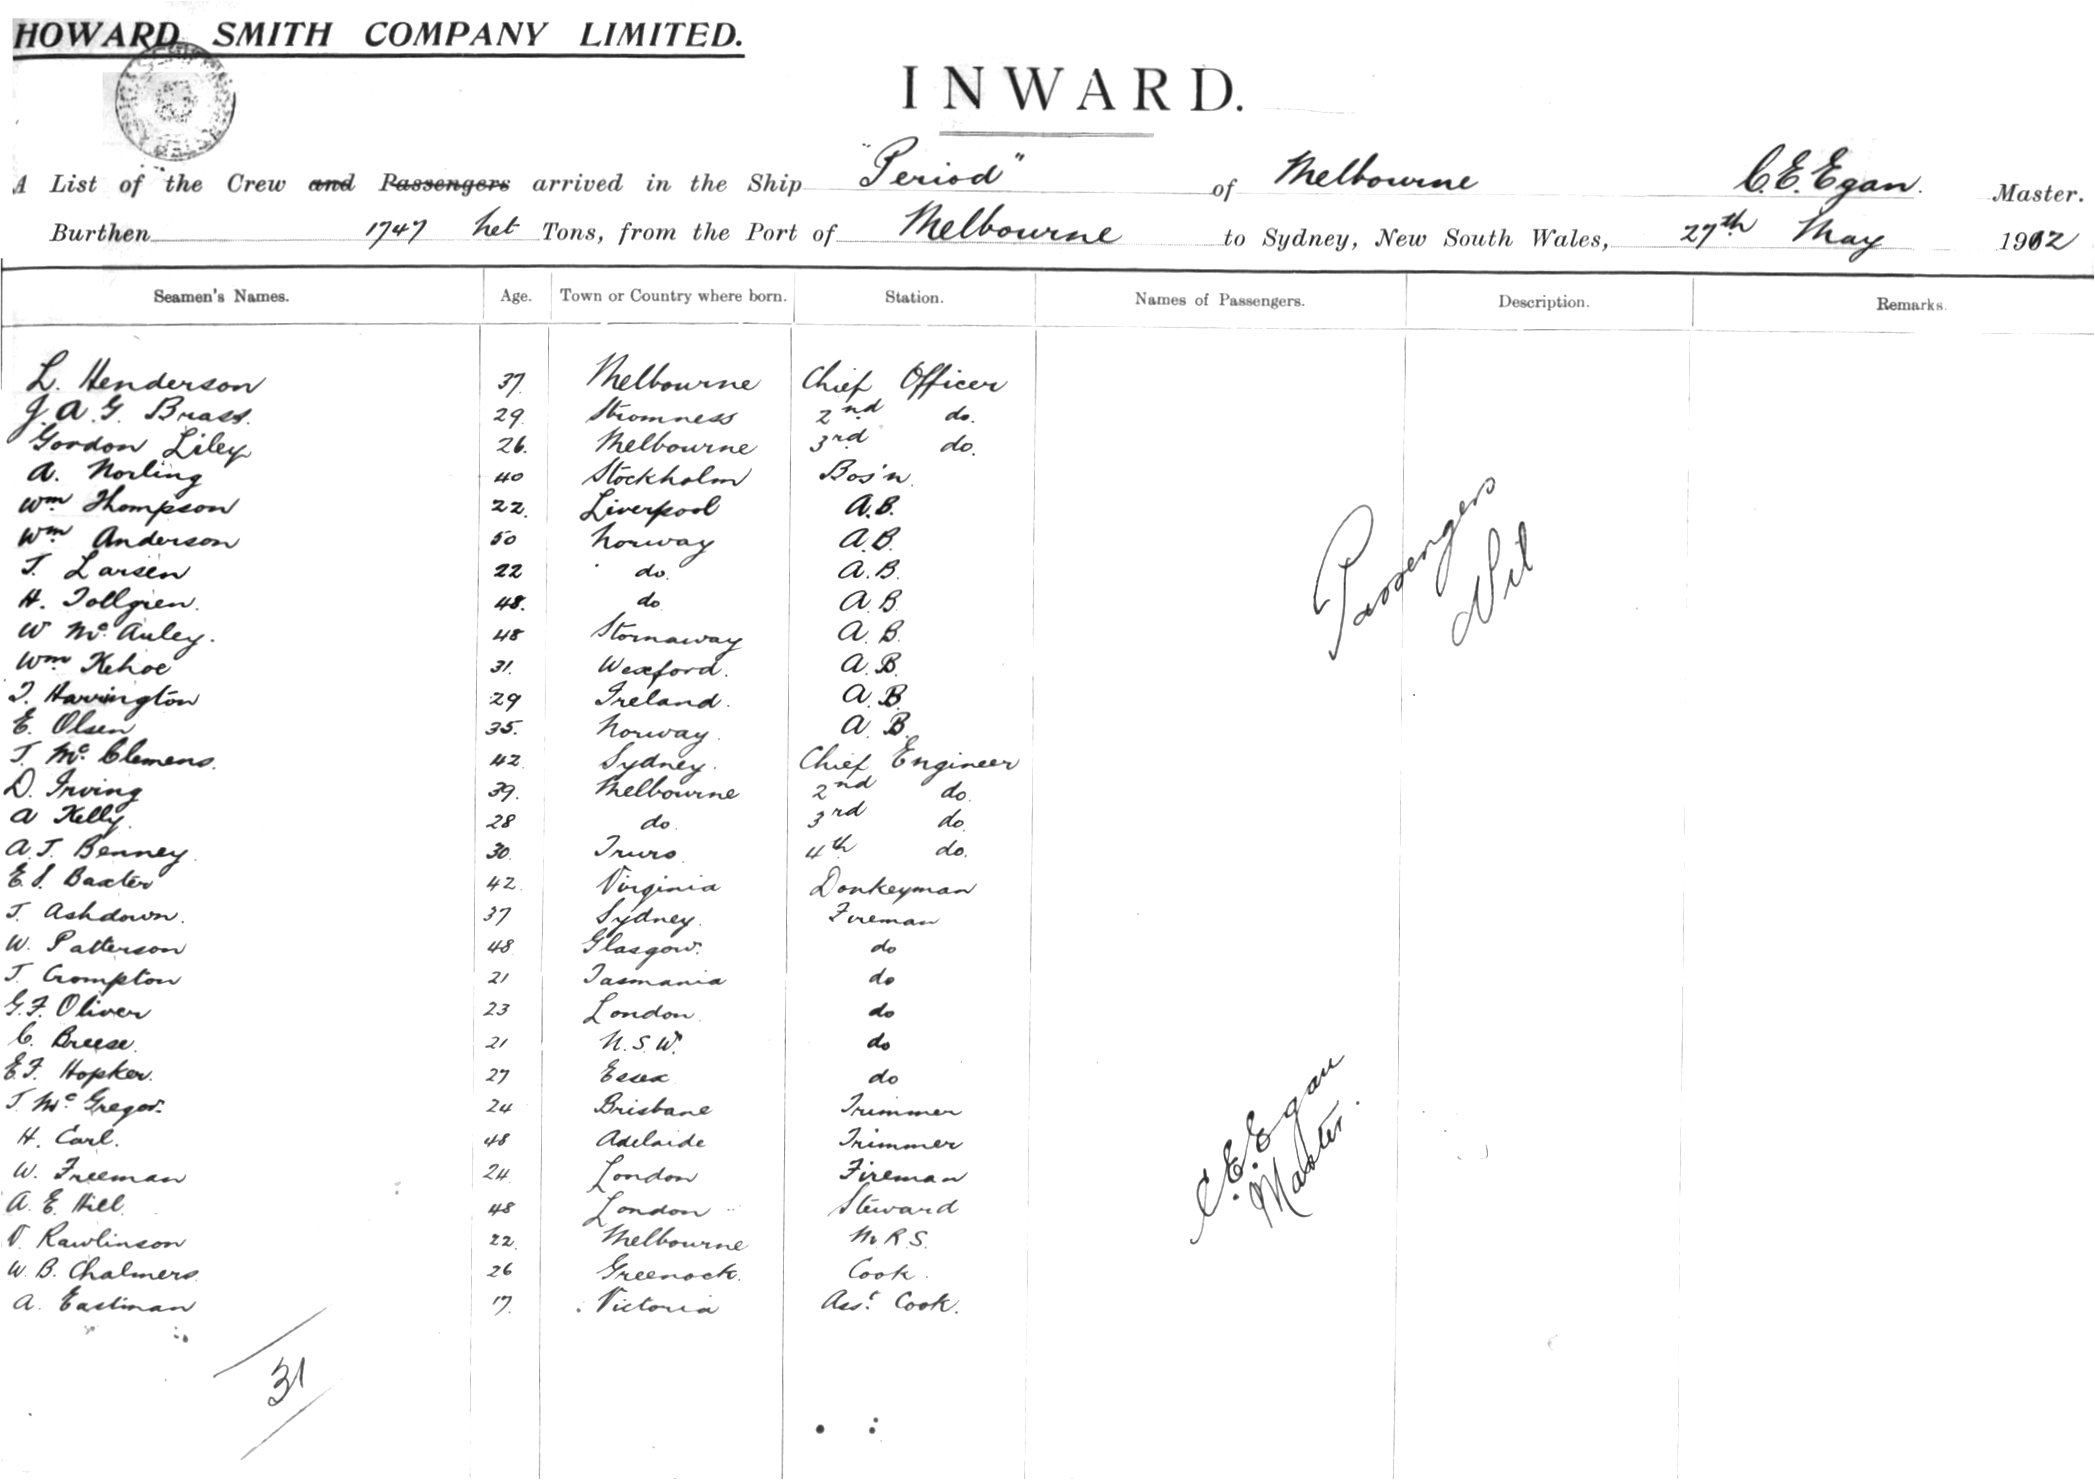 HOWARD SMITH COMPANY LIMITED.
INWARD.
A List of the Crew and Passengers arrived in the Ship "Period" of Melbourne C. E. Egan. Master.
Burthen 1747 net Tons, from the Port of Melbourne to Sydney, New South Wales, 27th May 1912
Seamen's Names. Age. Town or Country where born. Station. Names of Passengers. Description. Remarks.
L. Henderson 37. Melbourne Chief Officer
J. A. G. Brass. 29. Stromness 2nd do.
Gordon Liley 26. Melbourne 3rd do.
A. Norling 40 Stockholm Bos'n.
Wm Thompson 22. Liverpool A.B.
Wm Anderson 50 Norway A.B.
T. Larsen 22 do. A.B.
H. Tollgren. 48. do A.B.
W Mc Auley. 48 Stornaway A.B.
Wm Kehoe 31. Wexford. A.B.
T. Harrington 29 Ireland. A.B.
E. Olsen 35. Norway. A.B.
T. Mc Clemens. 42 Sydney. Chief Engineer
D. Irving 39. Melbourne 2nd do.
A Kelly. 28 do. 3rd do.
A. T. Benney. 30. Truro. 4th do.
E. S. Baxter 42. Virginia Donkeyman
T. Ashdown. 37 Sydney. Fireman
W. Patterson 48 Glasgow. do
T. Crompton 21 Tasmania do
G. F. Oliver 23 London. do
C. Breese. 21 N.S.W. do
E. F. Hopker. 27 Essex do
T. Mc Gregor. 24 Brisbane Trimmer
H. Carl. 48 Adelaide Trimmer
W. Freeman 24 London Fireman
A. E. Hill. 48 London Steward
V. Rawlinson 22. Melbourne M.R.S.
W. B. Chalmers. 26 Greenock. Cook.
A. Eastman 17. Victoria Asst. Cook.
Passengers
Nil
C. E. Egan
Master.
31